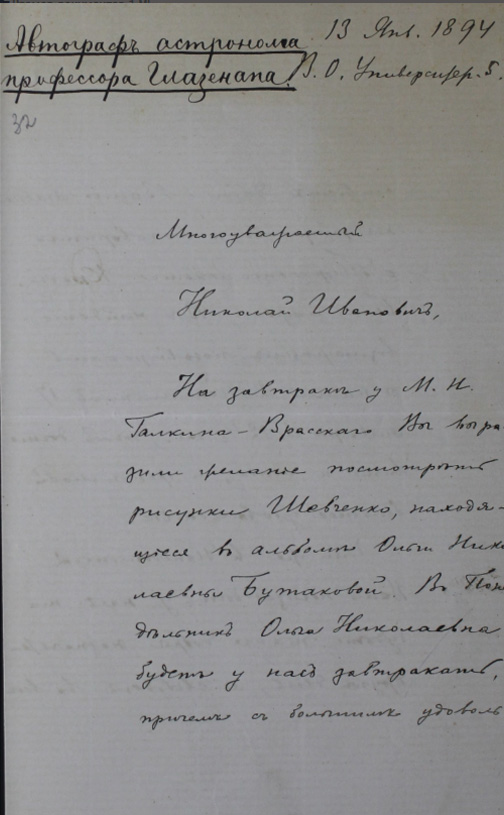 Автографъ астронома
профессора Глазенапа.
13 Янв. 1894
В. О. Университ. 5.
32
Многоуважаемый
Николай Ивановичъ,
На завтракѣ у М. Н.
Галкина-Врасскаго Вы выра
зили желаніе посмотрѣть
рисунки Шевченко, находя-
щіеся въ альбомѣ Ольги Нико
лаевны Бутаковой. Въ Поне
дѣльникъ Ольга Николаевна
будетъ у насъ завтракать,
причемъ съ большимъ удоволь